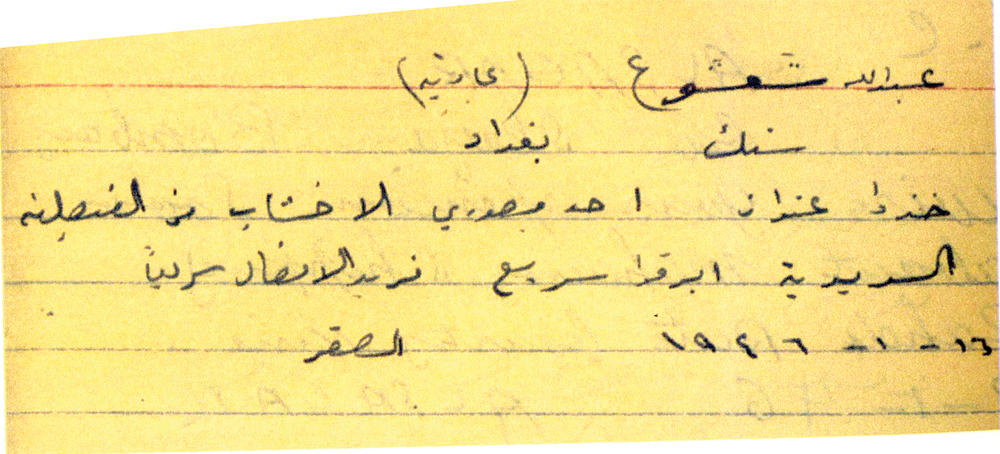 عبدالله شعشوع (عادية)
سنك بغداد
خذوا عنوان احد مصدري الاخشاب من القنصلية
السويدية ابرقوا سريع نريد الاتصال سريعاً
١٦ - ١ - ١٩٤٦ الصقر